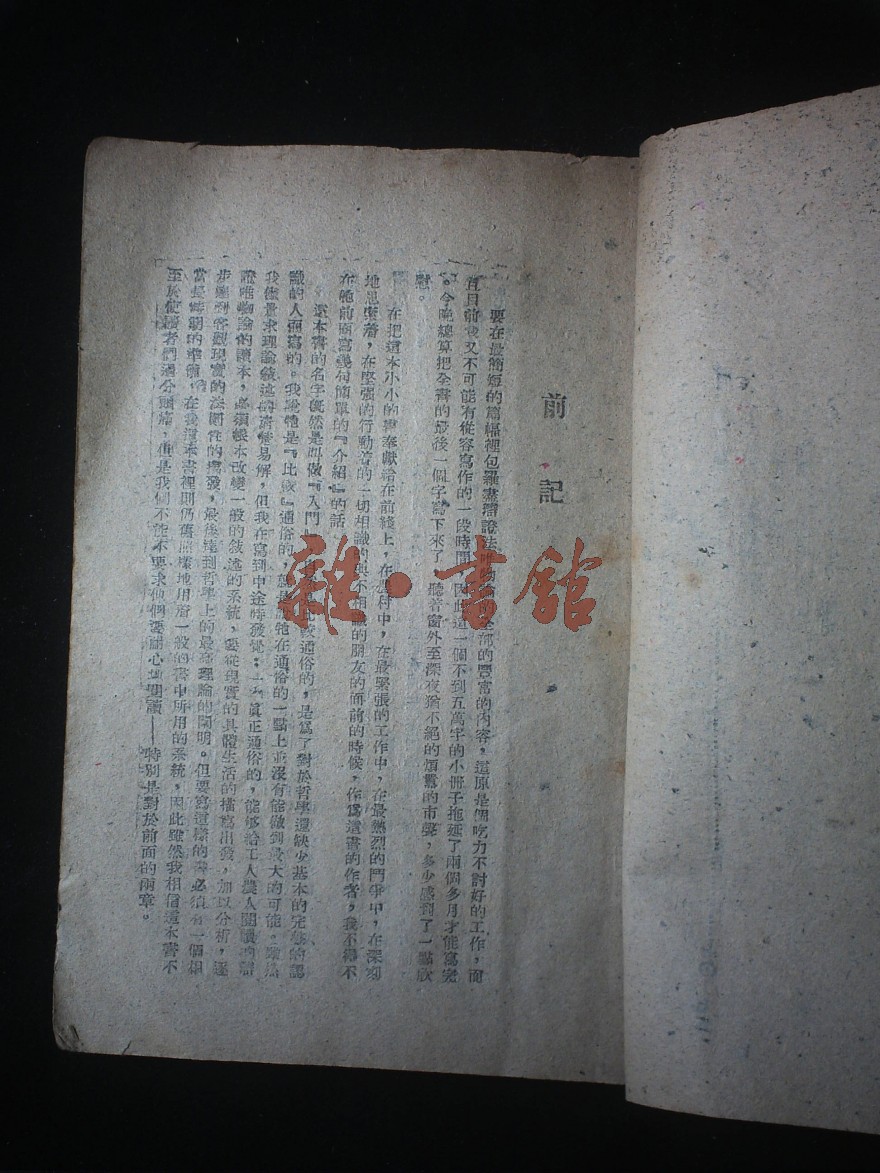 前記
要在最簡短的篇幅裡包羅盡辯證法唯物論的全部的豐富的內容，這原是個吃力不討好的工作，而
且目前我又不可能有從容寫作的一段時間，因此這一個不到五萬字的小冊子拖延了兩個多月才能寫完
。今晚總算把全書的最後一個字寫下來了，聽着窗外至深夜猶不絕的煩囂的市聲，多少感到了一點欣
慰。
在把這本小小的書奉獻給在前綫上，在農村中，在最緊張的工作中，在最熱烈的鬥爭中，在深刻
地思索着，在堅强的行動着的一切相識的與不相識的朋友的面前的時候，作為這書的作者，我不得不
在牠前面寫幾句簡單的『介紹』的話
這本書的名字既然是叫做『入門』較通俗的，是為了對於哲學還缺少基本的完整的認
識的人而寫的。我說牠是『比較』通俗的，牠在通俗的一點上並沒有能做到最大的可能。雖然
我儘量求理論敘述的清楚易解，但我在寫到中途時發覺：一本真正通俗的，能够給工人農人閱讀的辯
證唯物論的讀本，必須根本改變一般的敘述的系統，要從現實的具體生活的描寫出發，加以分析，逐
步達到客觀現實的法則性的揭發，最後達到哲學上的最高理論的闡明。但要寫這樣的書必須有一個相
當長時期的準備，在我這本書裡則仍舊照樣地用着一般的書中所用的系統，因此雖然我相信這本書不
至於使讀者們過分頭痛，但是我個不能不要求他們要耐心地閱讀——特別是對於前面的兩章。
雜·書館